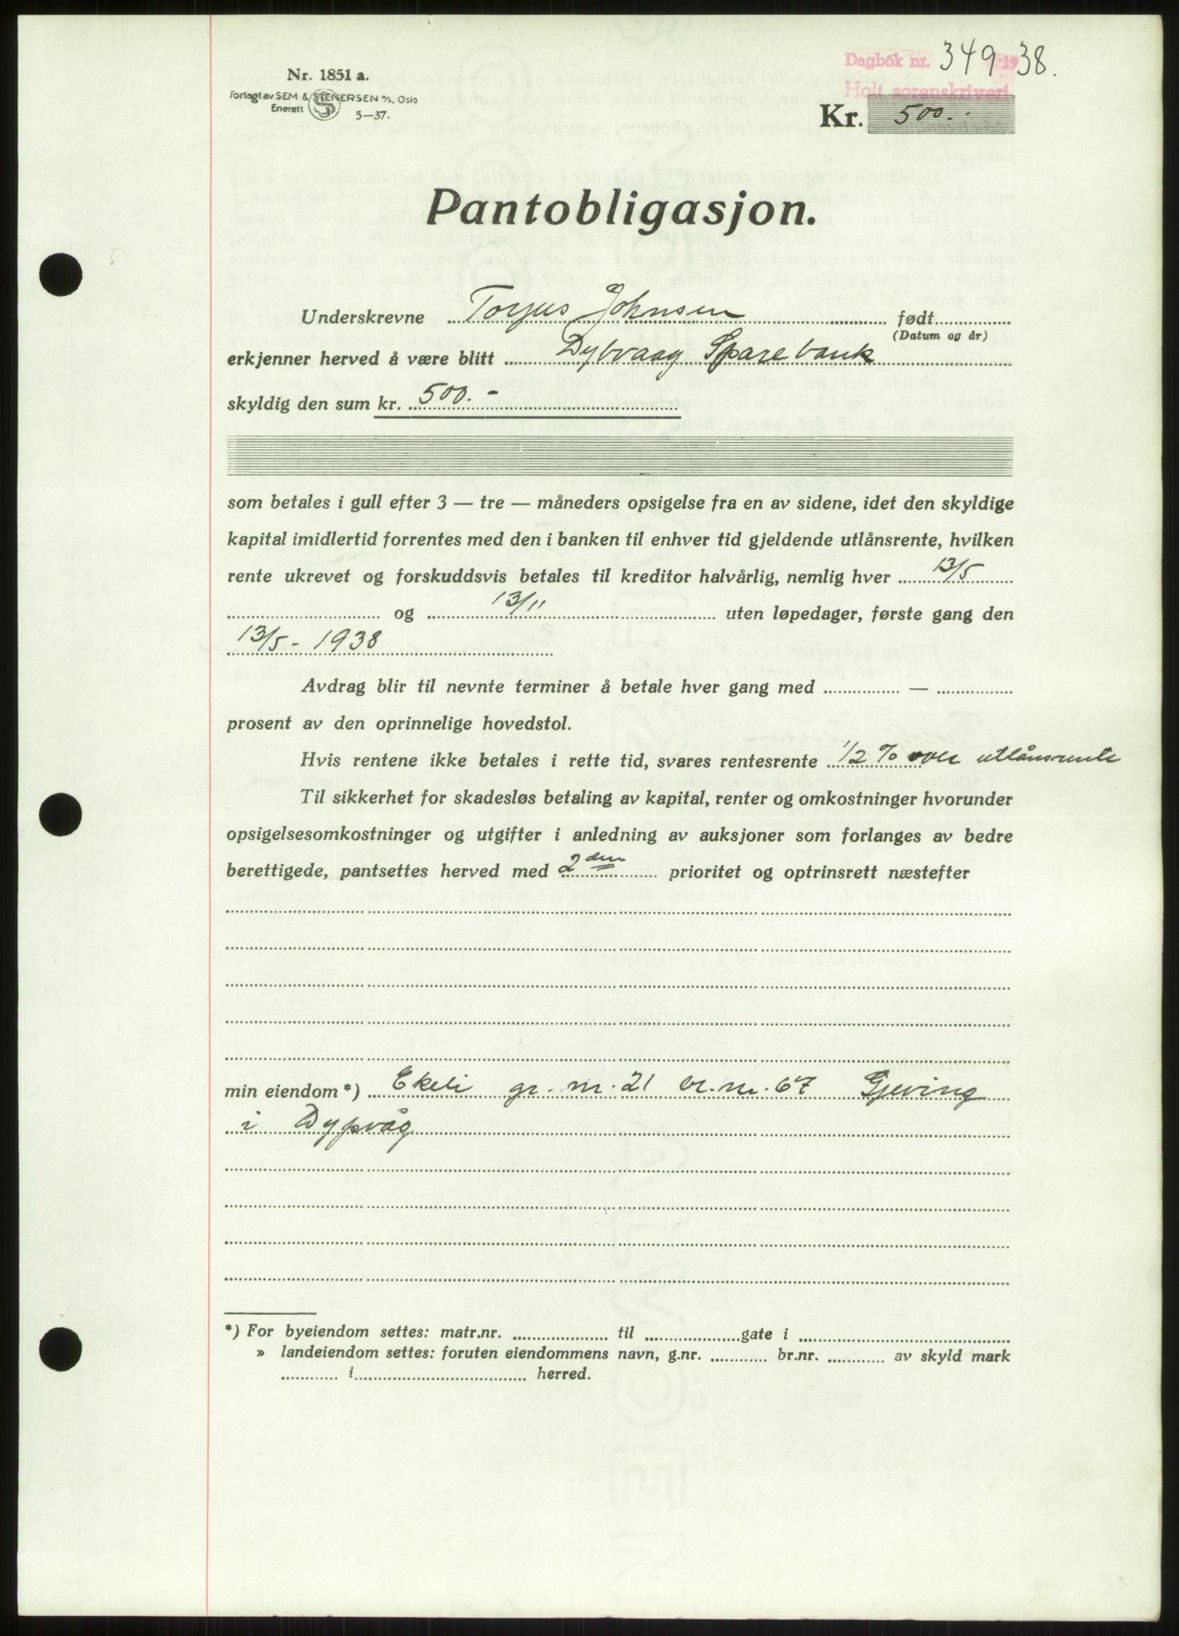 Dagbok nr. 349 1938.
Holt sorenskriveri
Nr. 1851 a.
Forlagt av SEM & STENERSEN A/S, Oslo
Enerett 5—37.
Kr. 500.-
Pantobligasjon.
Underskrevne Torjus Johnsen født
(Datum og år)
erkjenner herved å være blitt Dybvaag Sparebank
skyldig den sum kr. 500.-
som betales i gull efter 3 — tre — måneders opsigelse fra en av sidene, idet den skyldige
kapital imidlertid forrentes med den i banken til enhver tid gjeldende utlånsrente, hvilken
rente ukrevet og forskuddsvis betales til kreditor halvårlig, nemlig hver 13/5
og 13/11 uten løpedager, første gang den
13/5 - 1938
Avdrag blir til nevnte terminer å betale hver gang med —
prosent av den oprinnelige hovedstol.
Hvis rentene ikke betales i rette tid, svares rentesrente 1/2 % over utlånsrente
Til sikkerhet for skadesløs betaling av kapital, renter og omkostninger hvorunder
opsigelsesomkostninger og utgifter i anledning av auksjoner som forlanges av bedre
berettigede, pantsettes herved med 2den prioritet og optrinsrett næstefter
min eiendom *) Ekeli gr. nr. 21 br. nr. 67 Gjeving
i Dypvåg
*) For byeiendom settes: matr.nr. til gate i
» landeiendom settes: foruten eiendommens navn, g.nr. br.nr. av skyld mark
i herred.